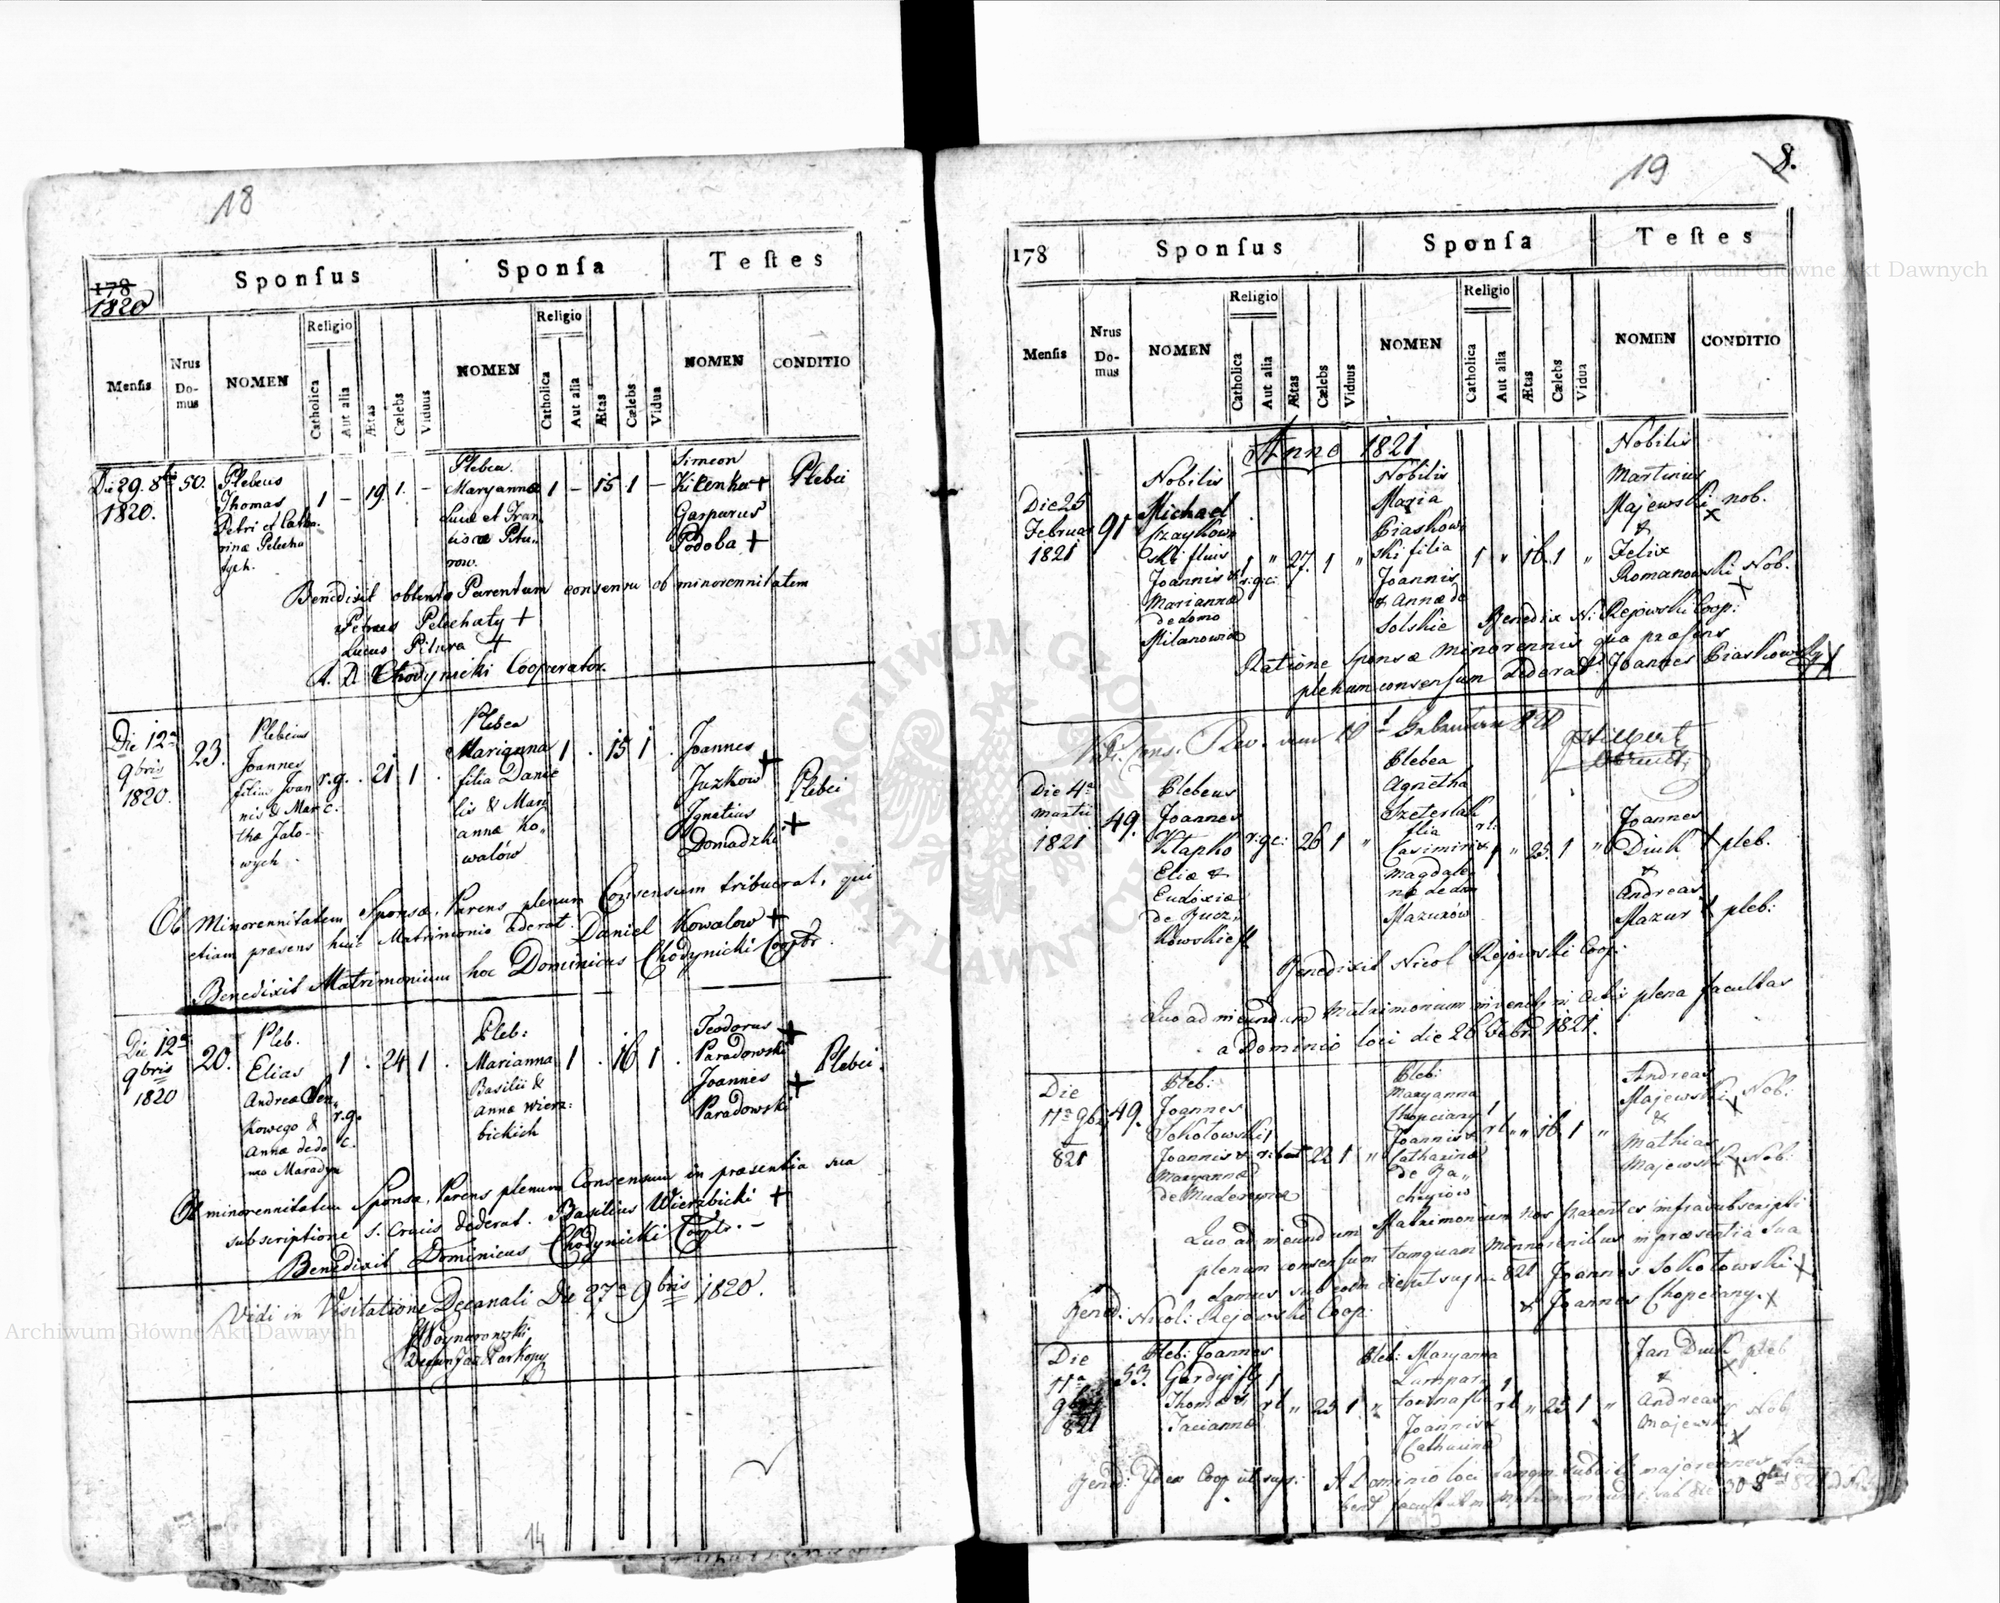 18
178
1820
Sponſus
Sponſa
Teſtes
Menſis
Nrus Domus
NOMEN
Religio
Catholica
Aut alia
Ætas
Cælebs
Viduus
NOMEN
Religio
Catholica
Aut alia
Ætas
Cælebs
Vidua
NOMEN
CONDITIO
Die 29. 8bris 1820.
50.
Plebeus
Thomas
Petri et Catha-
rinæ Pelecha
tych.
1 – 19. 1. –
Plebea.
Maryanna
Lucæ et Fran
cisca Pitu-
row.
1 – 15 1 –
Simeon
Kitenka +
Gasparus
Podoba +
Plebei
Benedixit obtento Parentum consensu ob minorennitatem
Petrus Pelechaty +
Lucas Pitura +
A. D. Chodynicki Cooperator.
Die 12a
9bris
1820.
23.
Plebeius
Joannes
filius Joan
nis & Mar
thæ Jato-
wych
r.g.
c.
21 1
Plebea
Marianna
filia Danie
lis & Mari
annæ Ko-
walów
1 . 15 1 .
Joannes
Juzkow +
Ignatius
Domadzki +
Plebei
Ob Minorennitatem Sponsæ, Parens plenum Consensum tribuerat, qui
etiam præsens huic Matrimonio aderat. Daniel Kowalow +
Benedixit Matrimonium hoc Dominicus Chodynicki Cooptr.
Die 12a
9bris
1820
20.
Pleb.
Elias
Andreæ Sen-
kowego &
Annæ de do
mo Maradyn
1 . 24 1 .
r.g.
c.
Pleb:
Marianna
Basilii &
Annæ Wierz-
bickich
1 . 16 1 .
Teodorus +
Paradowski
Joannes +
Paradowski
Plebei.
Ob minorennitatem Sponsæ, Parens plenum Consensum in præsentia sua
subscriptione S. Crucis dederat. Basilius Wierzbicki +
Benedixit Dominicus Chodynicki Cooptr. –
Vidi in Visitatione Decanali Die 27a 9bris 1820.
14
19
8.
178
Sponſus
Sponſa
Teſtes
Menſis
Nrus Domus
NOMEN
Religio
Catholica
Aut alia
Ætas
Cælebs
Viduus
NOMEN
Religio
Catholica
Aut alia
Ætas
Cælebs
Vidua
NOMEN
CONDITIO
Anno 1821
Die 25
Februar
1821
91
Nobilis
Michael
Joannis &
Mariannæ
de domo
Milanowiæ
1 " 27. 1 "
r.g.c.
Nobilis
Maria
Ciaskow-
ski filia
Joannis
& Annæ de
Solskie
1 " 16. 1 "
Nobilis
Martinus
Majewski nob.
x
&
Felix
Romanowski Nob.
x
Benedix N: Rejowski Coop:
Ratione Sponsæ Minorennis qua præsens
plenum consensum dederat. Joannes Ciaskowsky X
Die 4a
Martii
1821
49.
Plebeus
Joannes
Ktapko
Eliæ &
Eudoxiæ
de Bucz-
kowskie fl
r:g:c: 26 1 "
Plebea
Agnetha
Szeterlak
filia
Casimiri &
Magdale-
næ de dom
Mazurów
rl:
1 " 25. 1 "
Joannes
Duik + pleb.
&
Andreas
Mazur + pleb:
Benedixit Nicol Rejowski Coop:
Quo ad ineundum Matrimonium invenitur in actis plena facultas
a Dominio loci die 26 Febr. 1821.
Die
11a 9br
821
49.
Pleb:
Joannes
Sokotowski
Joannis &
Maryannæ
22 1 "
Pleb:
Maryanna
Chopciany
Joannis &
Catharinæ
de Ba-
chryiow
1
rl " 16. 1 "
Andreas
Majewski Nob:
x
&
Mathias
Majewski Nob:
x
Quo ad ineundum Matrimonium nos parentes infrasubscripti
plenum consensum tamquam Minorenibus in præsentia sua
damus sub eodem die ut supra 821 Joannes Sokotowski x
& Joannes Chopciany x
Bened: Nicol: Rejowski Coop:
Die
11a
821
53.
Pleb: Joannes
Thomæ &
Tacianna
1
rl " 25 1 "
Pleb: Maryanna
Joannis &
Catharinæ
1
rl " 25 1 "
Jan Duik pleb
x
&
Andreas
Majewski Nob
x
Bened: Idem Coop ut sup:
15
Archiwum Główne Akt Dawnych
Archiwum Główne Akt Dawnych
ARCHIWUM GŁÓWNE AKT DAWNYCH